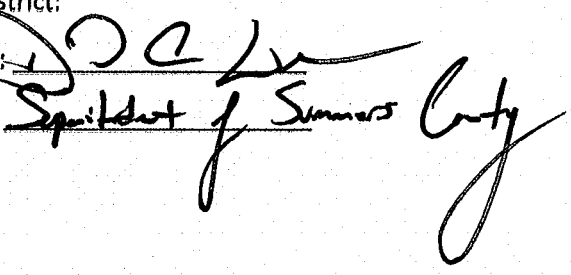 strict:
D C L
Superintendent of Summers County